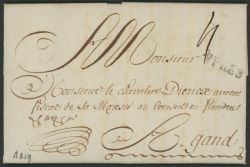 A Monsieur
YPRES
Monsieur le chevalier Diericx avocat
fiscal de Sa Majesté au Conseil en Flandres
A Gand